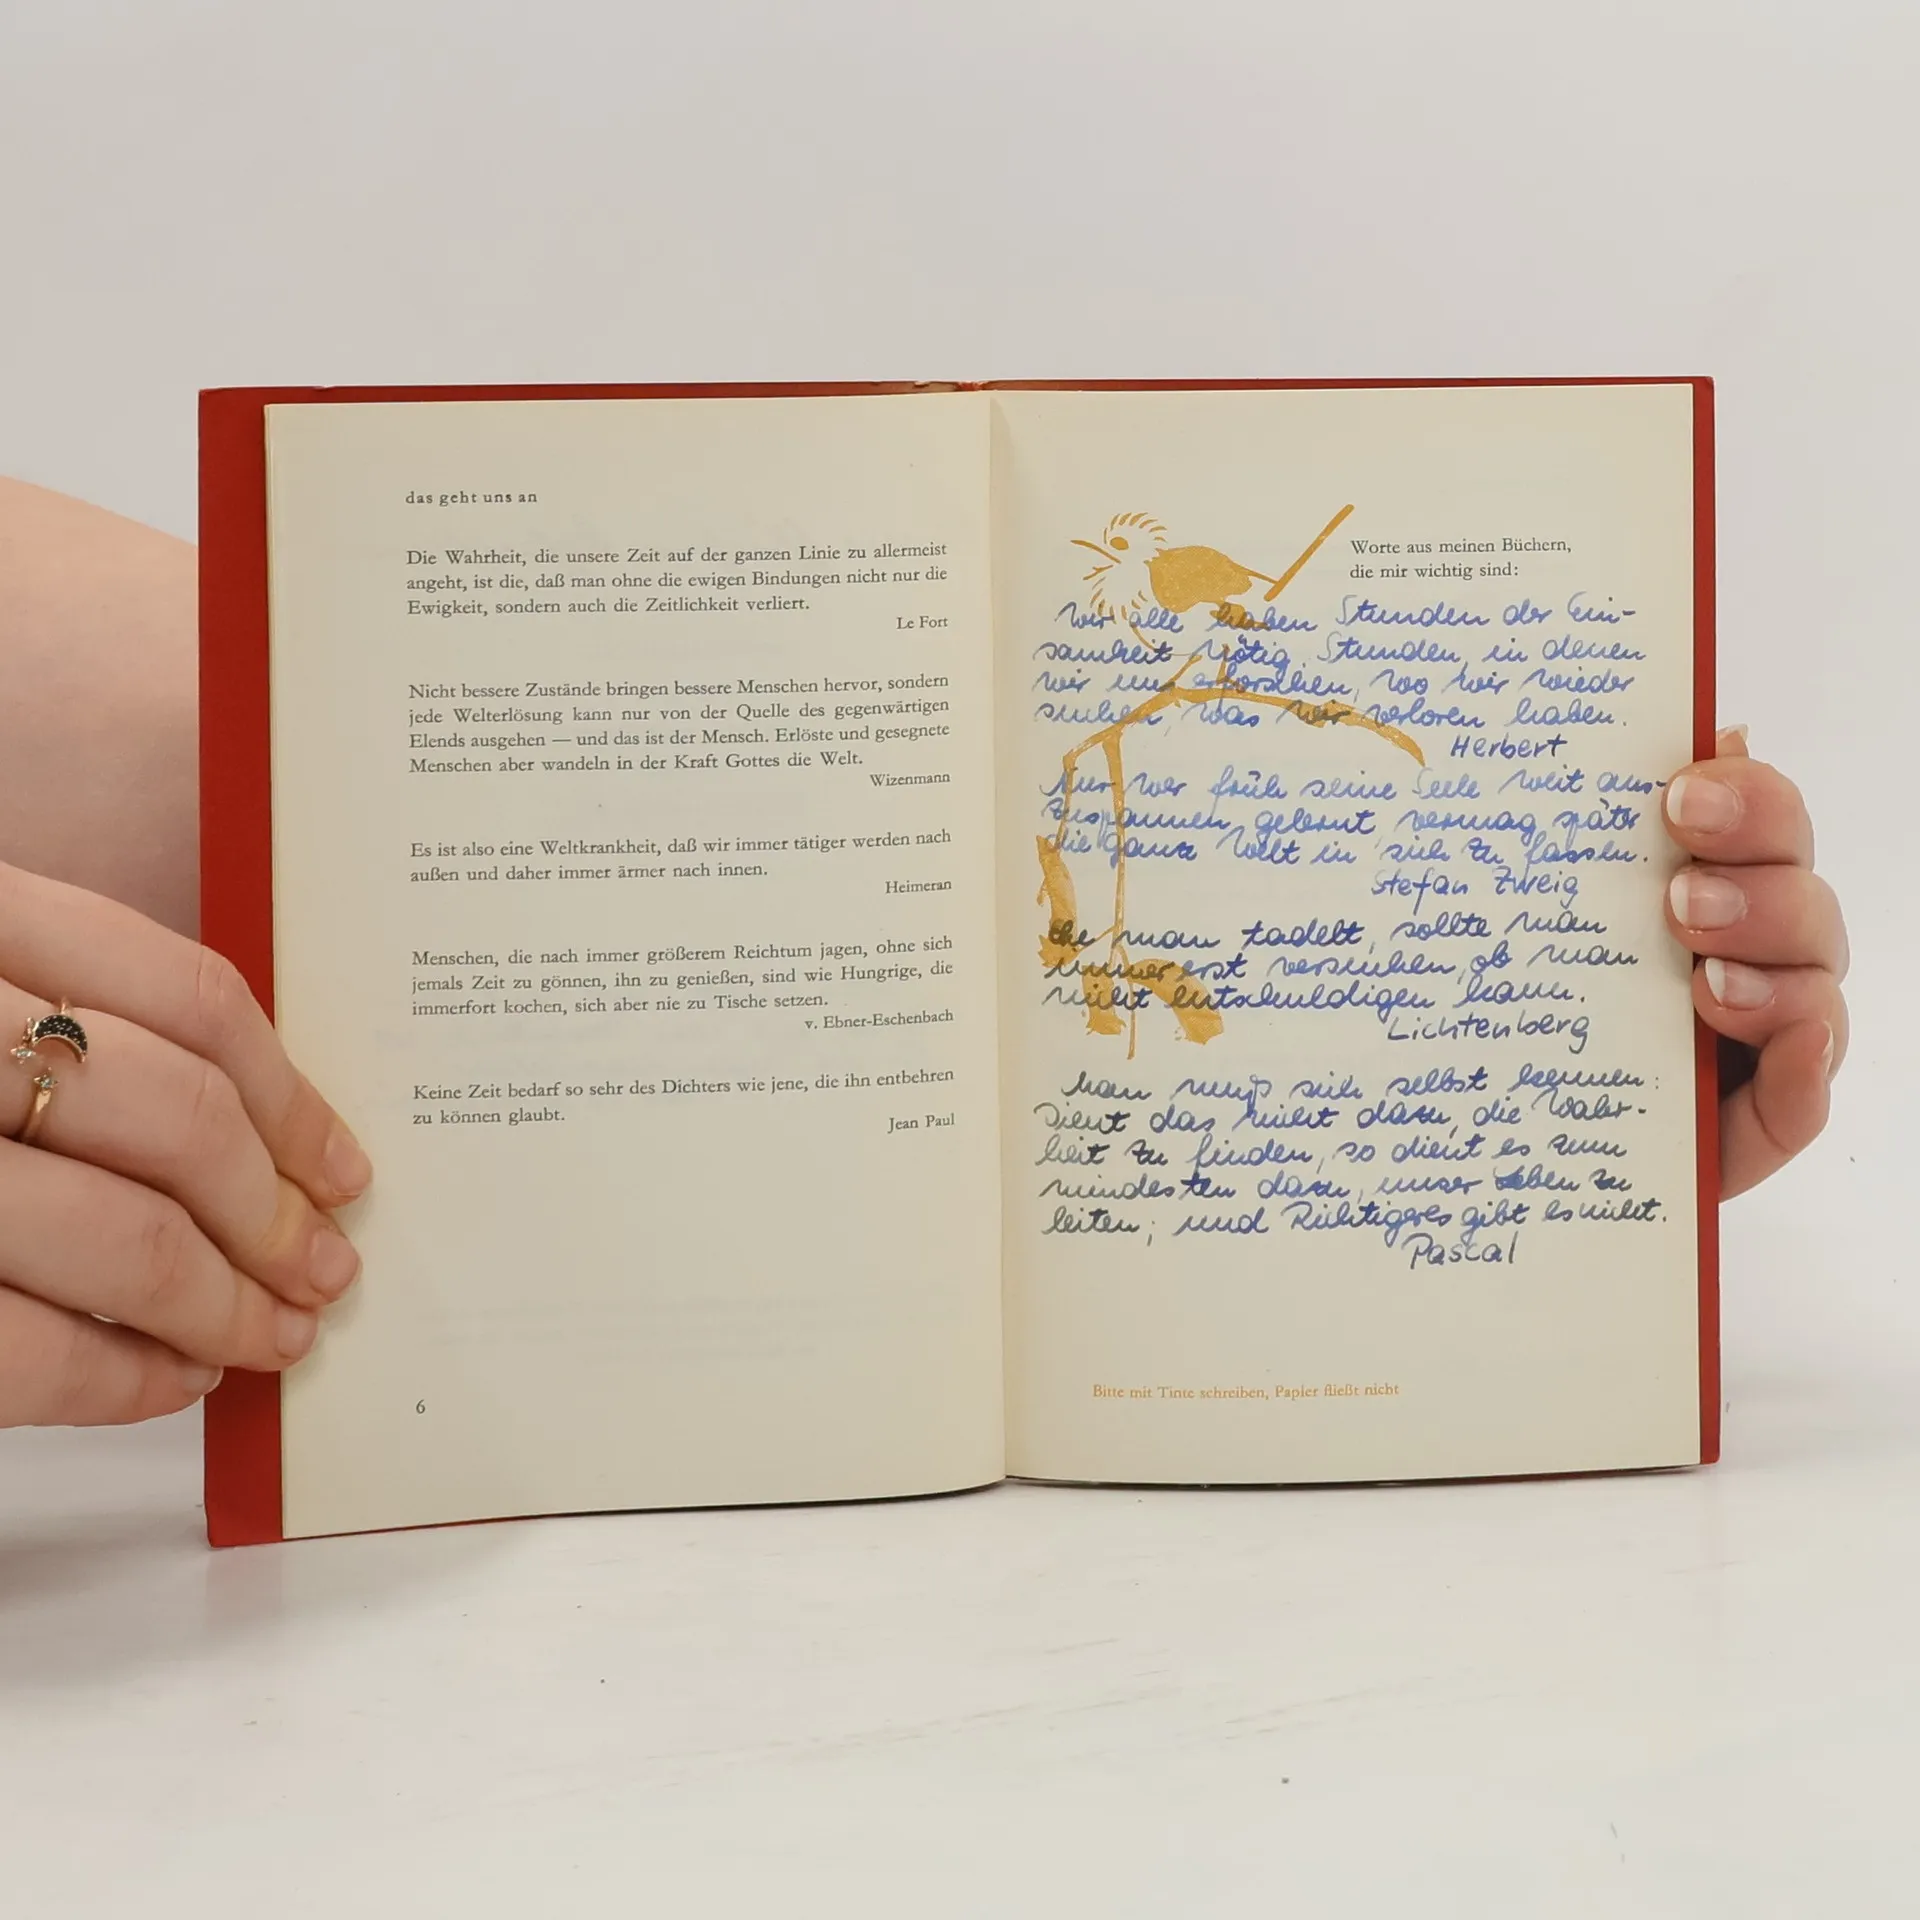 das geht uns an
Die Wahrheit, die unsere Zeit auf der ganzen Linie zu allermeist
angeht, ist die, daß man ohne die ewigen Bindungen nicht nur die
Ewigkeit, sondern auch die Zeitlichkeit verliert.
Le Fort
Nicht bessere Zustände bringen bessere Menschen hervor, sondern
jede Welterlösung kann nur von der Quelle des gegenwärtigen
Elends ausgehen — und das ist der Mensch. Erlöste und gesegnete
Menschen aber wandeln in der Kraft Gottes die Welt.
Wizenmann
Es ist also eine Weltkrankheit, daß wir immer tätiger werden nach
außen und daher immer ärmer nach innen.
Heimeran
Menschen, die nach immer größerem Reichtum jagen, ohne sich
jemals Zeit zu gönnen, ihn zu genießen, sind wie Hungrige, die
immerfort kochen, sich aber nie zu Tische setzen.
v. Ebner-Eschenbach
Keine Zeit bedarf so sehr des Dichters wie jene, die ihn entbehren
zu können glaubt.
Jean Paul
6
Worte aus meinen Büchern,
die mir wichtig sind:
Wir alle haben Stunden der Ein-
samkeit nötig. Stunden, in denen
wir uns erforschen, wo wir wieder
suchen, was wir verloren haben.
Herbert
Nur wer früh seine Seele weit aus-
zuspannen gelernt, vermag später
die ganze Welt in sich zu fassen.
Stefan Zweig
Ehe man tadelt, sollte man
immer erst versuchen, ob man
nicht entschuldigen kann.
Lichtenberg
Man muß sich selbst kennen:
Dient das nicht dazu, die Wahr-
heit zu finden, so dient es zum
mindesten dazu, unser Leben zu
leiten; und Richtigeres gibt es nicht.
Pascal
Bitte mit Tinte schreiben, Papier fließt nicht